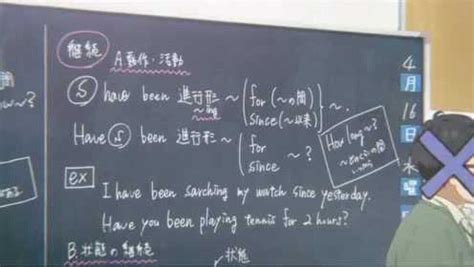 継続 A.動作・活動
S have been 進行形 ~ for (~の間) ~.
~ing since (~以来)
Have S been 進行形 ~ for ~ ?
since
How long ~?
ex
I have been sarching my watch since yesterday.
Have you been playing tennis for 2 hours?
B.状態の継続
状態
4
月
16
日
木
曜